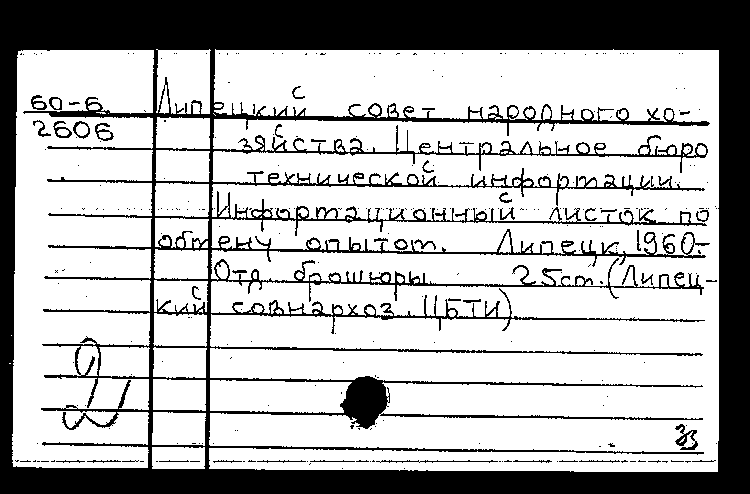 60-6. Липецкий совет народного хо-
2606 зяйства. Центральное бюро
технической информации.
Информационный листок по
обмену опытом. Липецк, 1960-
Отд брошюры 25см. (Липец-
кий совнархоз. ЦБТИ)
2